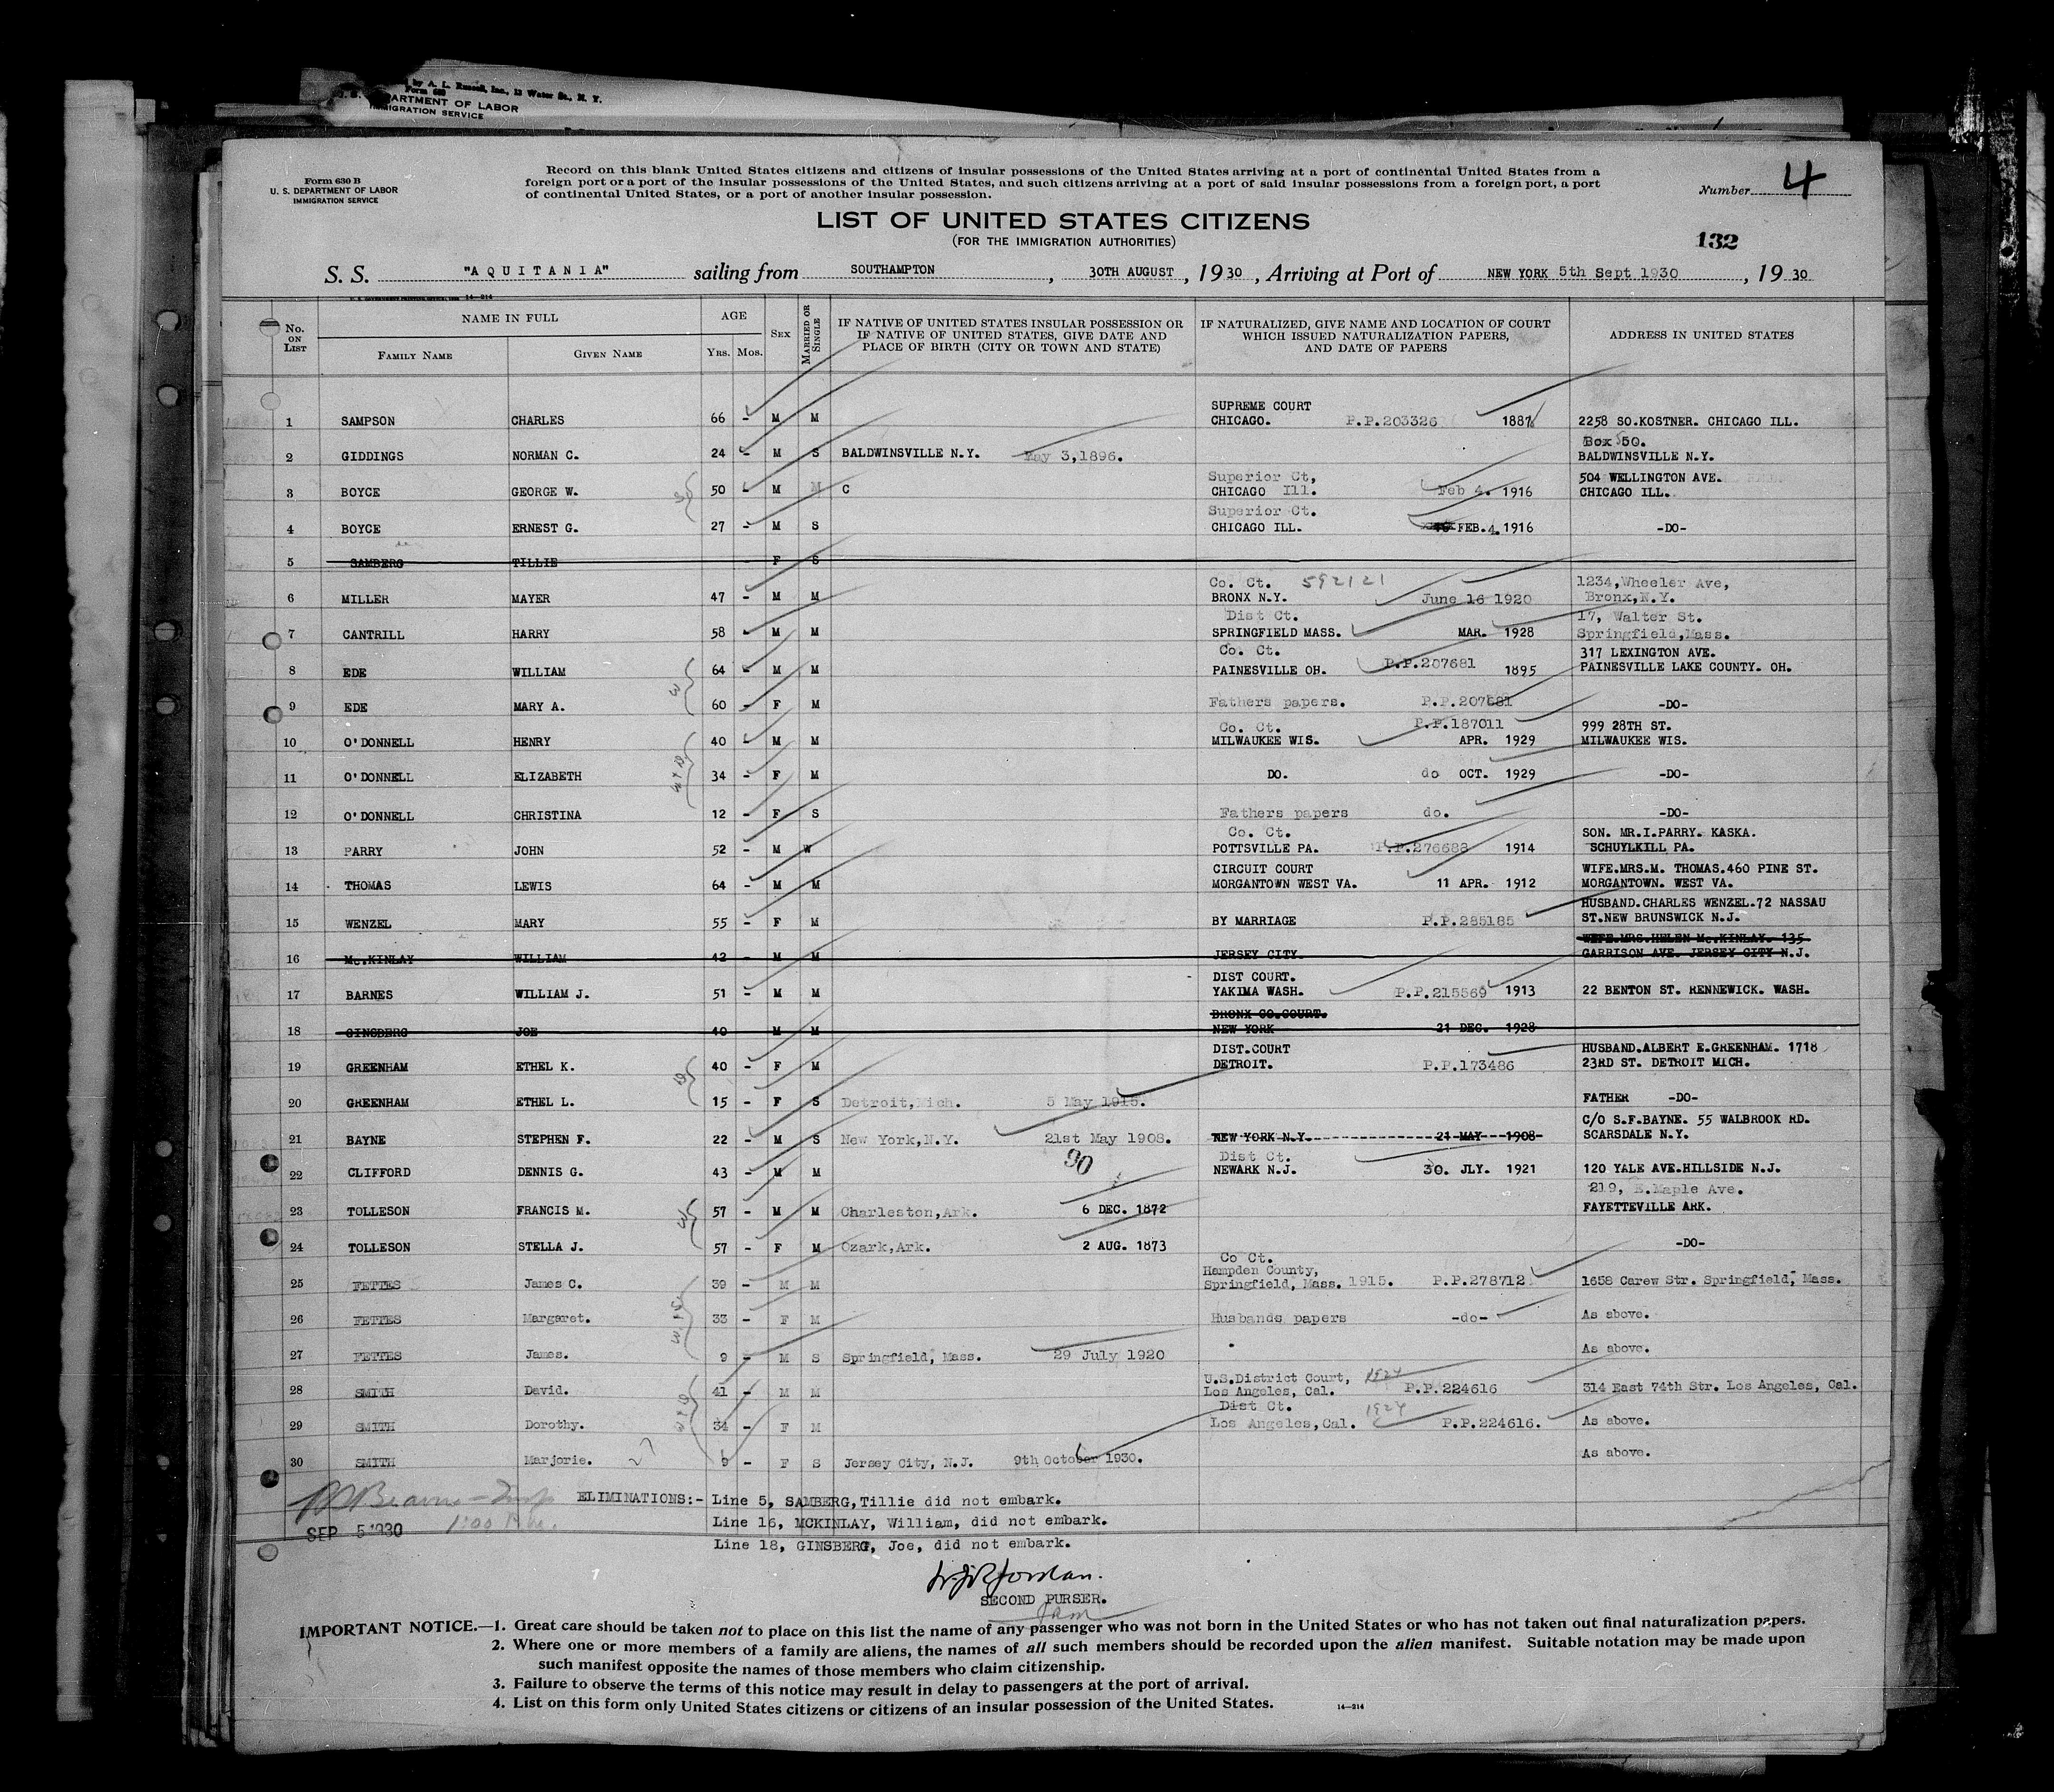 by A. L. Russell, Inc., 13 Water St., N. Y.
Form 630
DEPARTMENT OF LABOR
IMMIGRATION SERVICE
Form 630 B
U. S. DEPARTMENT OF LABOR
IMMIGRATION SERVICE
Record on this blank United States citizens and citizens of insular possessions of the United States arriving at a port of continental United States from a
foreign port or a port of the insular possessions of the United States, and such citizens arriving at a port of said insular possessions from a foreign port, a port
of continental United States, or a port of another insular possession.
Number 4
LIST OF UNITED STATES CITIZENS
(FOR THE IMMIGRATION AUTHORITIES)
132
S. S. "AQUITANIA" sailing from SOUTHAMPTON, 30TH AUGUST, 1930, Arriving at Port of NEW YORK 5th Sept 1930, 1930
14—214
No. ON LIST
NAME IN FULL
FAMILY NAME
GIVEN NAME
AGE
YRS. MOS.
SEX
MARRIED OR SINGLE
IF NATIVE OF UNITED STATES INSULAR POSSESSION OR
IF NATIVE OF UNITED STATES, GIVE DATE AND
PLACE OF BIRTH (CITY OR TOWN AND STATE)
IF NATURALIZED, GIVE NAME AND LOCATION OF COURT
WHICH ISSUED NATURALIZATION PAPERS,
AND DATE OF PAPERS
ADDRESS IN UNITED STATES
SUPREME COURT
1 SAMPSON CHARLES 66 - M M CHICAGO. P.P.203326 1887 2258 SO.KOSTNER. CHICAGO ILL.
Box 50.
2 GIDDINGS NORMAN C. 24 - M S BALDWINSVILLE N.Y. May 3,1896. BALDWINSVILLE N.Y.
Superior Ct, 504 WELLINGTON AVE.
3 BOYCE GEORGE W. 50 - M M C CHICAGO Ill. Feb 4. 1916 CHICAGO ILL.
Superior Ct.
4 BOYCE ERNEST G. 27 - M S CHICAGO ILL. FEB.4.1916 -DO-
5 SAMBERG TILLIE F S
Co. Ct. 592121 1234,Wheeler Ave,
6 MILLER MAYER 47 - M M BRONX N.Y. June 16 1920 Bronx,N.Y.
Dist Ct. 17, Walter St.
7 CANTRILL HARRY 58 - M M SPRINGFIELD MASS. MAR. 1928 Springfield,Mass.
Co. Ct. 317 LEXINGTON AVE.
8 EDE WILLIAM 64 - M M PAINESVILLE OH. P.P.207681 1895 PAINESVILLE LAKE COUNTY. OH.
9 EDE MARY A. 60 - F M Fathers papers. P.P.207681 -DO-
Co. Ct. P.P.187011 999 28TH ST.
10 O'DONNELL HENRY 40 - M M MILWAUKEE WIS. APR. 1929 MILWAUKEE WIS.
11 O'DONNELL ELIZABETH 34 - F M DO. do OCT. 1929 -DO-
12 O'DONNELL CHRISTINA 12 - F S Fathers papers do. -DO-
Co. Ct. SON. MR.I.PARRY. KASKA.
13 PARRY JOHN 52 - M W POTTSVILLE PA. P.P.276688 1914 SCHUYLKILL PA.
CIRCUIT COURT WIFE.MRS.M. THOMAS.460 PINE ST.
14 THOMAS LEWIS 64 - M M MORGANTOWN WEST VA. 11 APR. 1912 MORGANTOWN. WEST VA.
HUSBAND.CHARLES WENZEL.72 NASSAU
15 WENZEL MARY 55 - F M BY MARRIAGE P.P.285185 ST.NEW BRUNSWICK N.J.
WIFE.MRS.HELEN Mc.KINLAY. 135
16 Mc.KINLAY WILLIAM 42 - M M JERSEY CITY GARRISON AVE. JERSEY CITY N.J.
DIST COURT.
17 BARNES WILLIAM J. 51 - M M YAKIMA WASH. P.P.215569 1913 22 BENTON ST. RENNEWICK. WASH.
BRONX CO.COURT.
18 GINSBERG JOE 40 - M M NEW YORK 21 DEC. 1928
DIST.COURT HUSBAND.ALBERT E.GREENHAM. 1718
19 GREENHAM ETHEL K. 40 - F M DETROIT. P.P.173486 23RD ST. DETROIT MICH.
20 GREENHAM ETHEL L. 15 - F S Detroit,Mich. 5 May 1915. FATHER -DO-
C/O S.F.BAYNE. 55 WALBROOK RD.
21 BAYNE STEPHEN F. 22 - M S New York,N.Y. 21st May 1908. NEW YORK N.Y. 21 MAY 1908 SCARSDALE N.Y.
90 Dist Ct.
22 CLIFFORD DENNIS G. 43 - M M NEWARK N.J. 30. JLY. 1921 120 YALE AVE.HILLSIDE N.J.
219, E.Maple Ave.
23 TOLLESON FRANCIS M. 57 - M M Charleston,Ark. 6 DEC. 1872 FAYETTEVILLE ARK.
24 TOLLESON STELLA J. 57 - F M Ozark,Ark. 2 AUG. 1873 -DO-
Co Ct.
Hampden County,
25 FETTES James C. 39 - M M Springfield, Mass. 1915. P.P.278712 1658 Carew Str. Springfield, Mass.
26 FETTES Margaret. 33 - F M Husbands papers -do- As above.
27 FETTES James. 9 - M S Springfield, Mass. 29 July 1920 As above.
U.S.District Court, 1924
28 SMITH David. 41 - M M Los Angeles, Cal. P.P.224616 314 East 74th Str. Los Angeles, Cal.
Dist Ct. 1924
29 SMITH Dorothy. 34 - F M Los Angeles,Cal. P.P.224616. As above.
30 SMITH Marjorie. 9 - F S Jersey City, N.J. 9th October 1930. As above.
ELIMINATIONS:- Line 5, SAMBERG,Tillie did not embark.
Line 16, MCKINLAY, William, did not embark.
SEP 5 1930
Line 18, GINSBERG, Joe, did not embark.
SECOND PURSER.
IMPORTANT NOTICE.—1. Great care should be taken not to place on this list the name of any passenger who was not born in the United States or who has not taken out final naturalization papers.
2. Where one or more members of a family are aliens, the names of all such members should be recorded upon the alien manifest. Suitable notation may be made upon
such manifest opposite the names of those members who claim citizenship.
3. Failure to observe the terms of this notice may result in delay to passengers at the port of arrival.
4. List on this form only United States citizens or citizens of an insular possession of the United States. 14—214